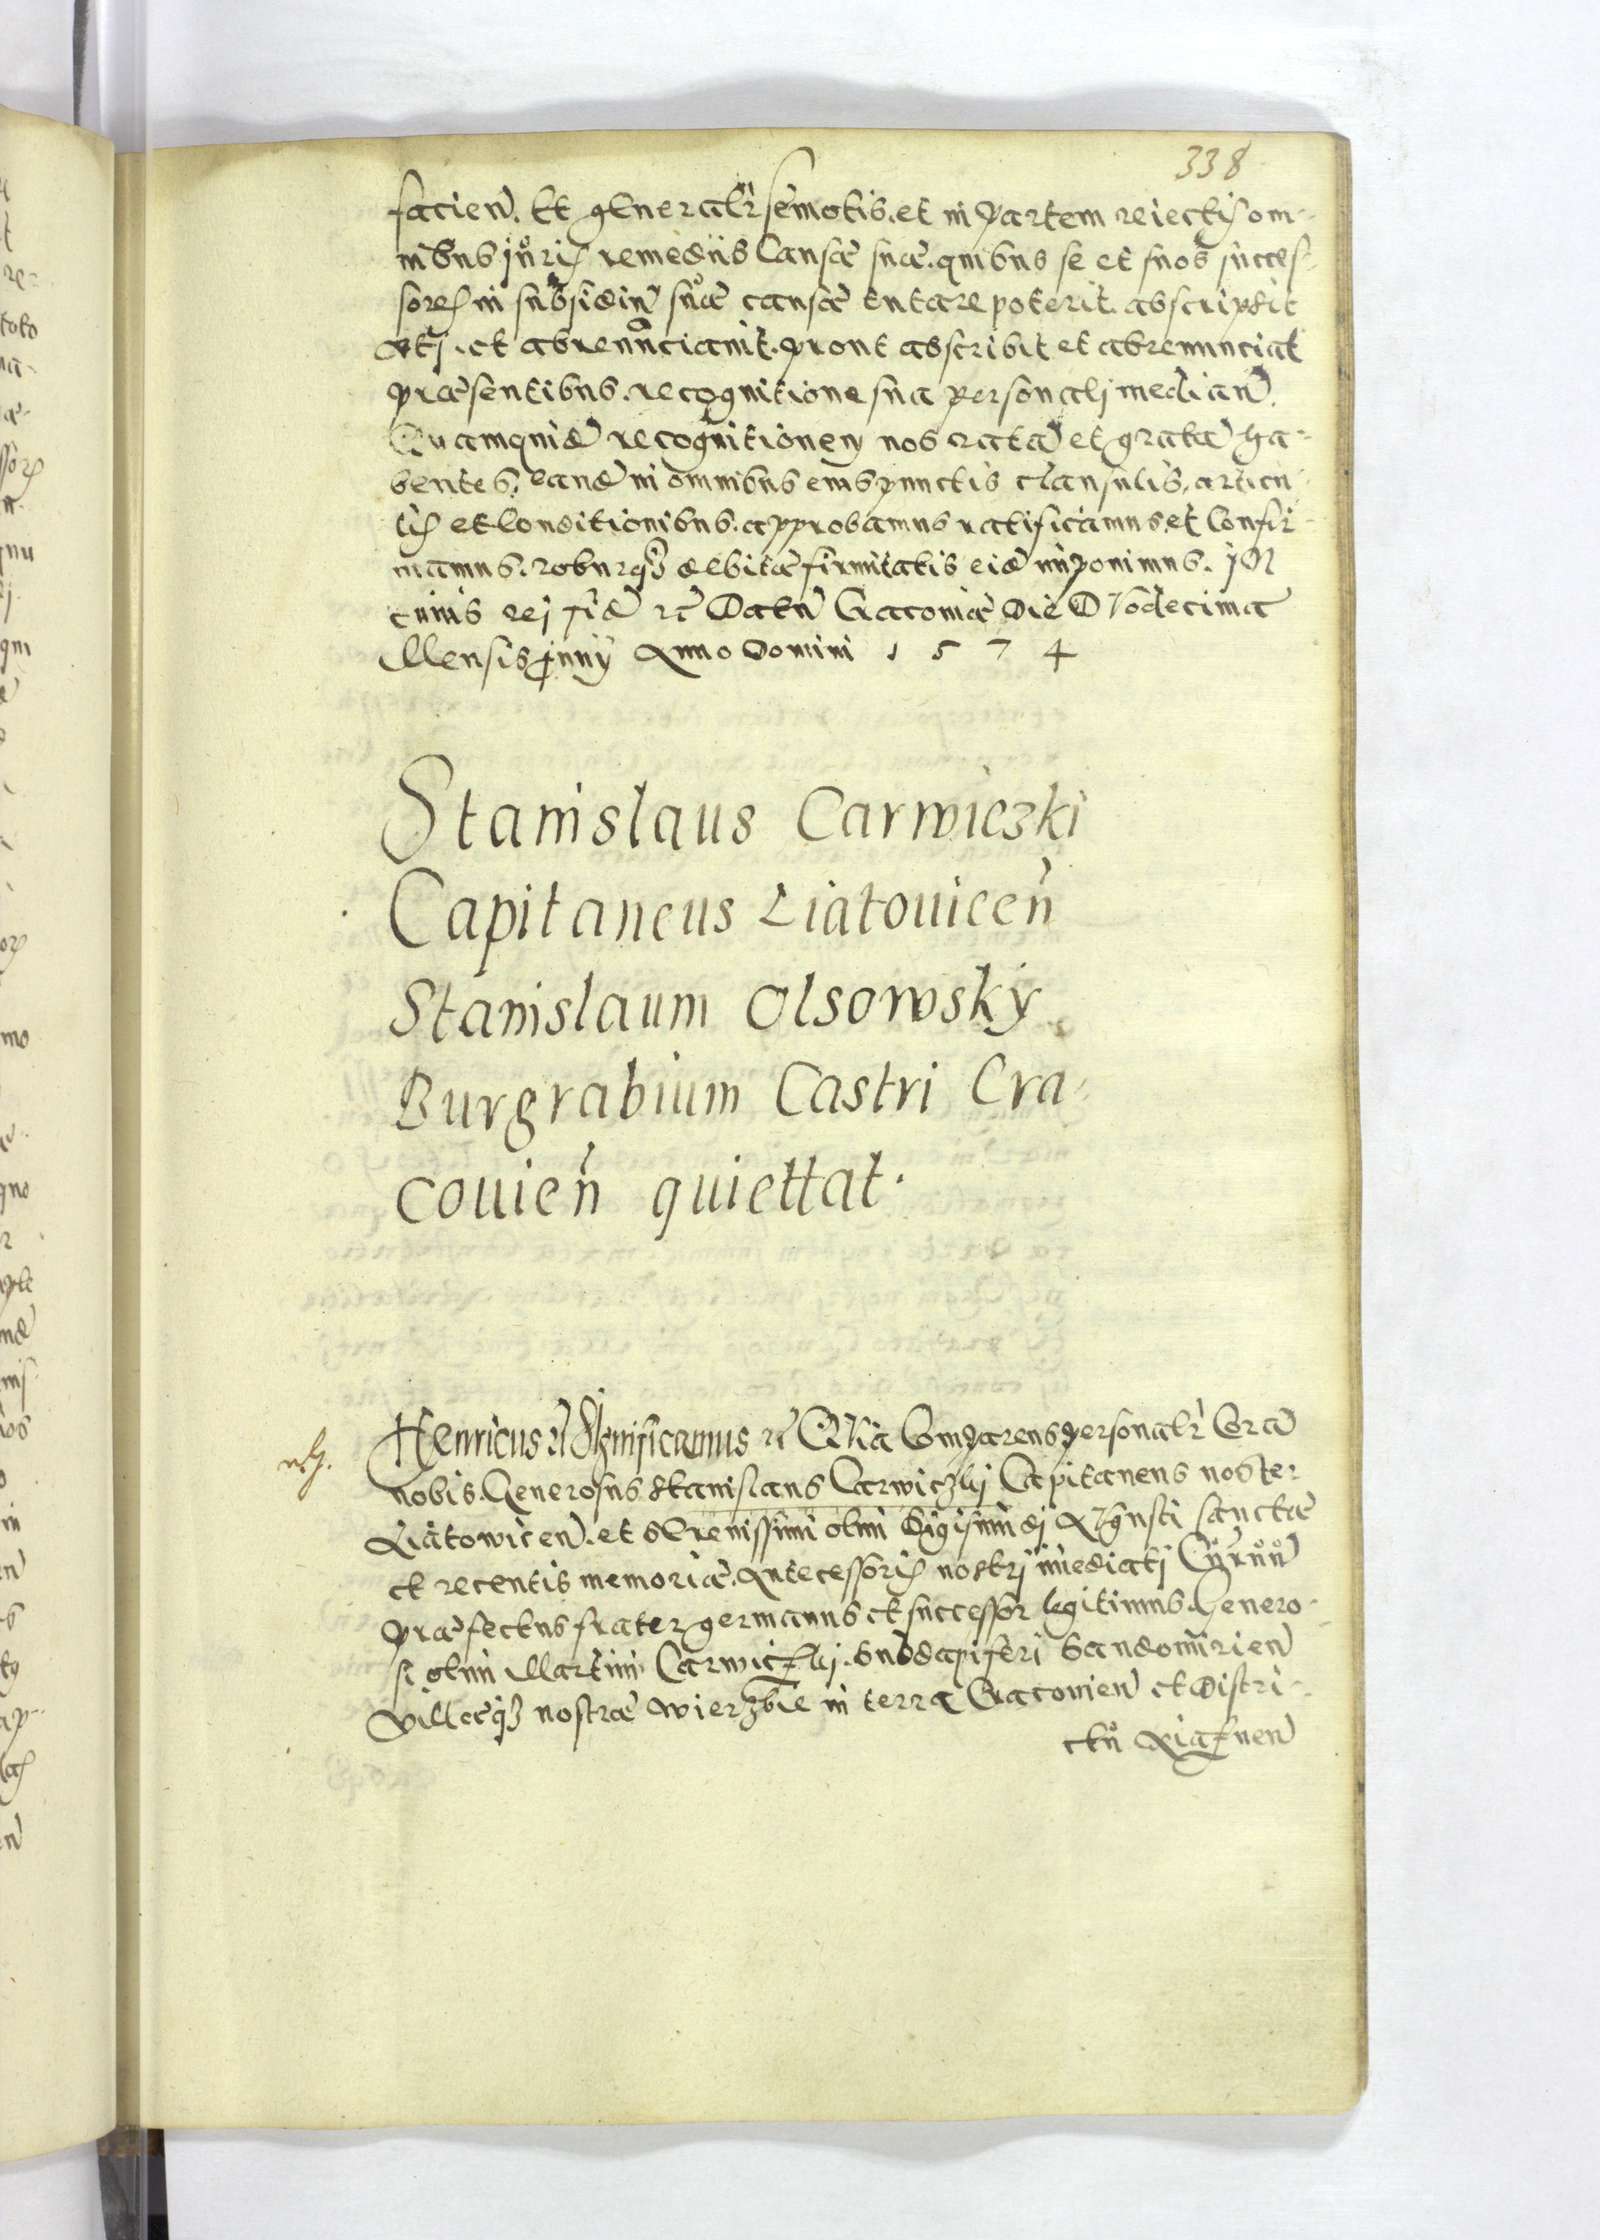 338
facien̄. Et generalr̄ semotis. et in partem reiectis om-
nibus juris remedijs Causæ suæ. quibus se et suos succes-
sores in subsidiū suæ causæ tutare poterit. abscripsit
et abrenunciauit. prout abscribit et abrenunciat
præsentibus. recognitione sua personalj median̄.
Quamquid̄ recognitionem nos ratā et gratā ha-
bentes. eand̄ in omnibus eius punctis clausulis, articu-
lis et Conditionibus. approbamus ratificamus. et Confir-
mamus. roburq3 debitæ firmitatis eid̄ imponimus. IN
cuius rej fid̄ rc̄ Datū Cracouiæ Die Duodecima
Mensis Junij Anno Domini 1574
Stanislaus Carwiczki
Capitaneus Liatouicen̄
Stanislaum Olsowsky
Burgrabium Castri Cra-
couien̄ quiettat.
Henricus rc̄ Significamus rc̄ Quia Comparens personalr̄ Corā
nobis. Generosus Stanislaus Carwiczkj Capitaneus noster
Liatowicen̄. et Serenissimi olim Sigismūdj Augusti sanctæ
et recentis memoriæ. Antecessoris nostrj īmediatj
præfectus frater germanus et successor legitimus. Genero-
si olim Martini Carwiczkj. Subdapiferi Sandomirien̄
Villæq3 nostræ Wierzbie in terra Cracouien̄ et Distri-
ctu Xiaznen̄